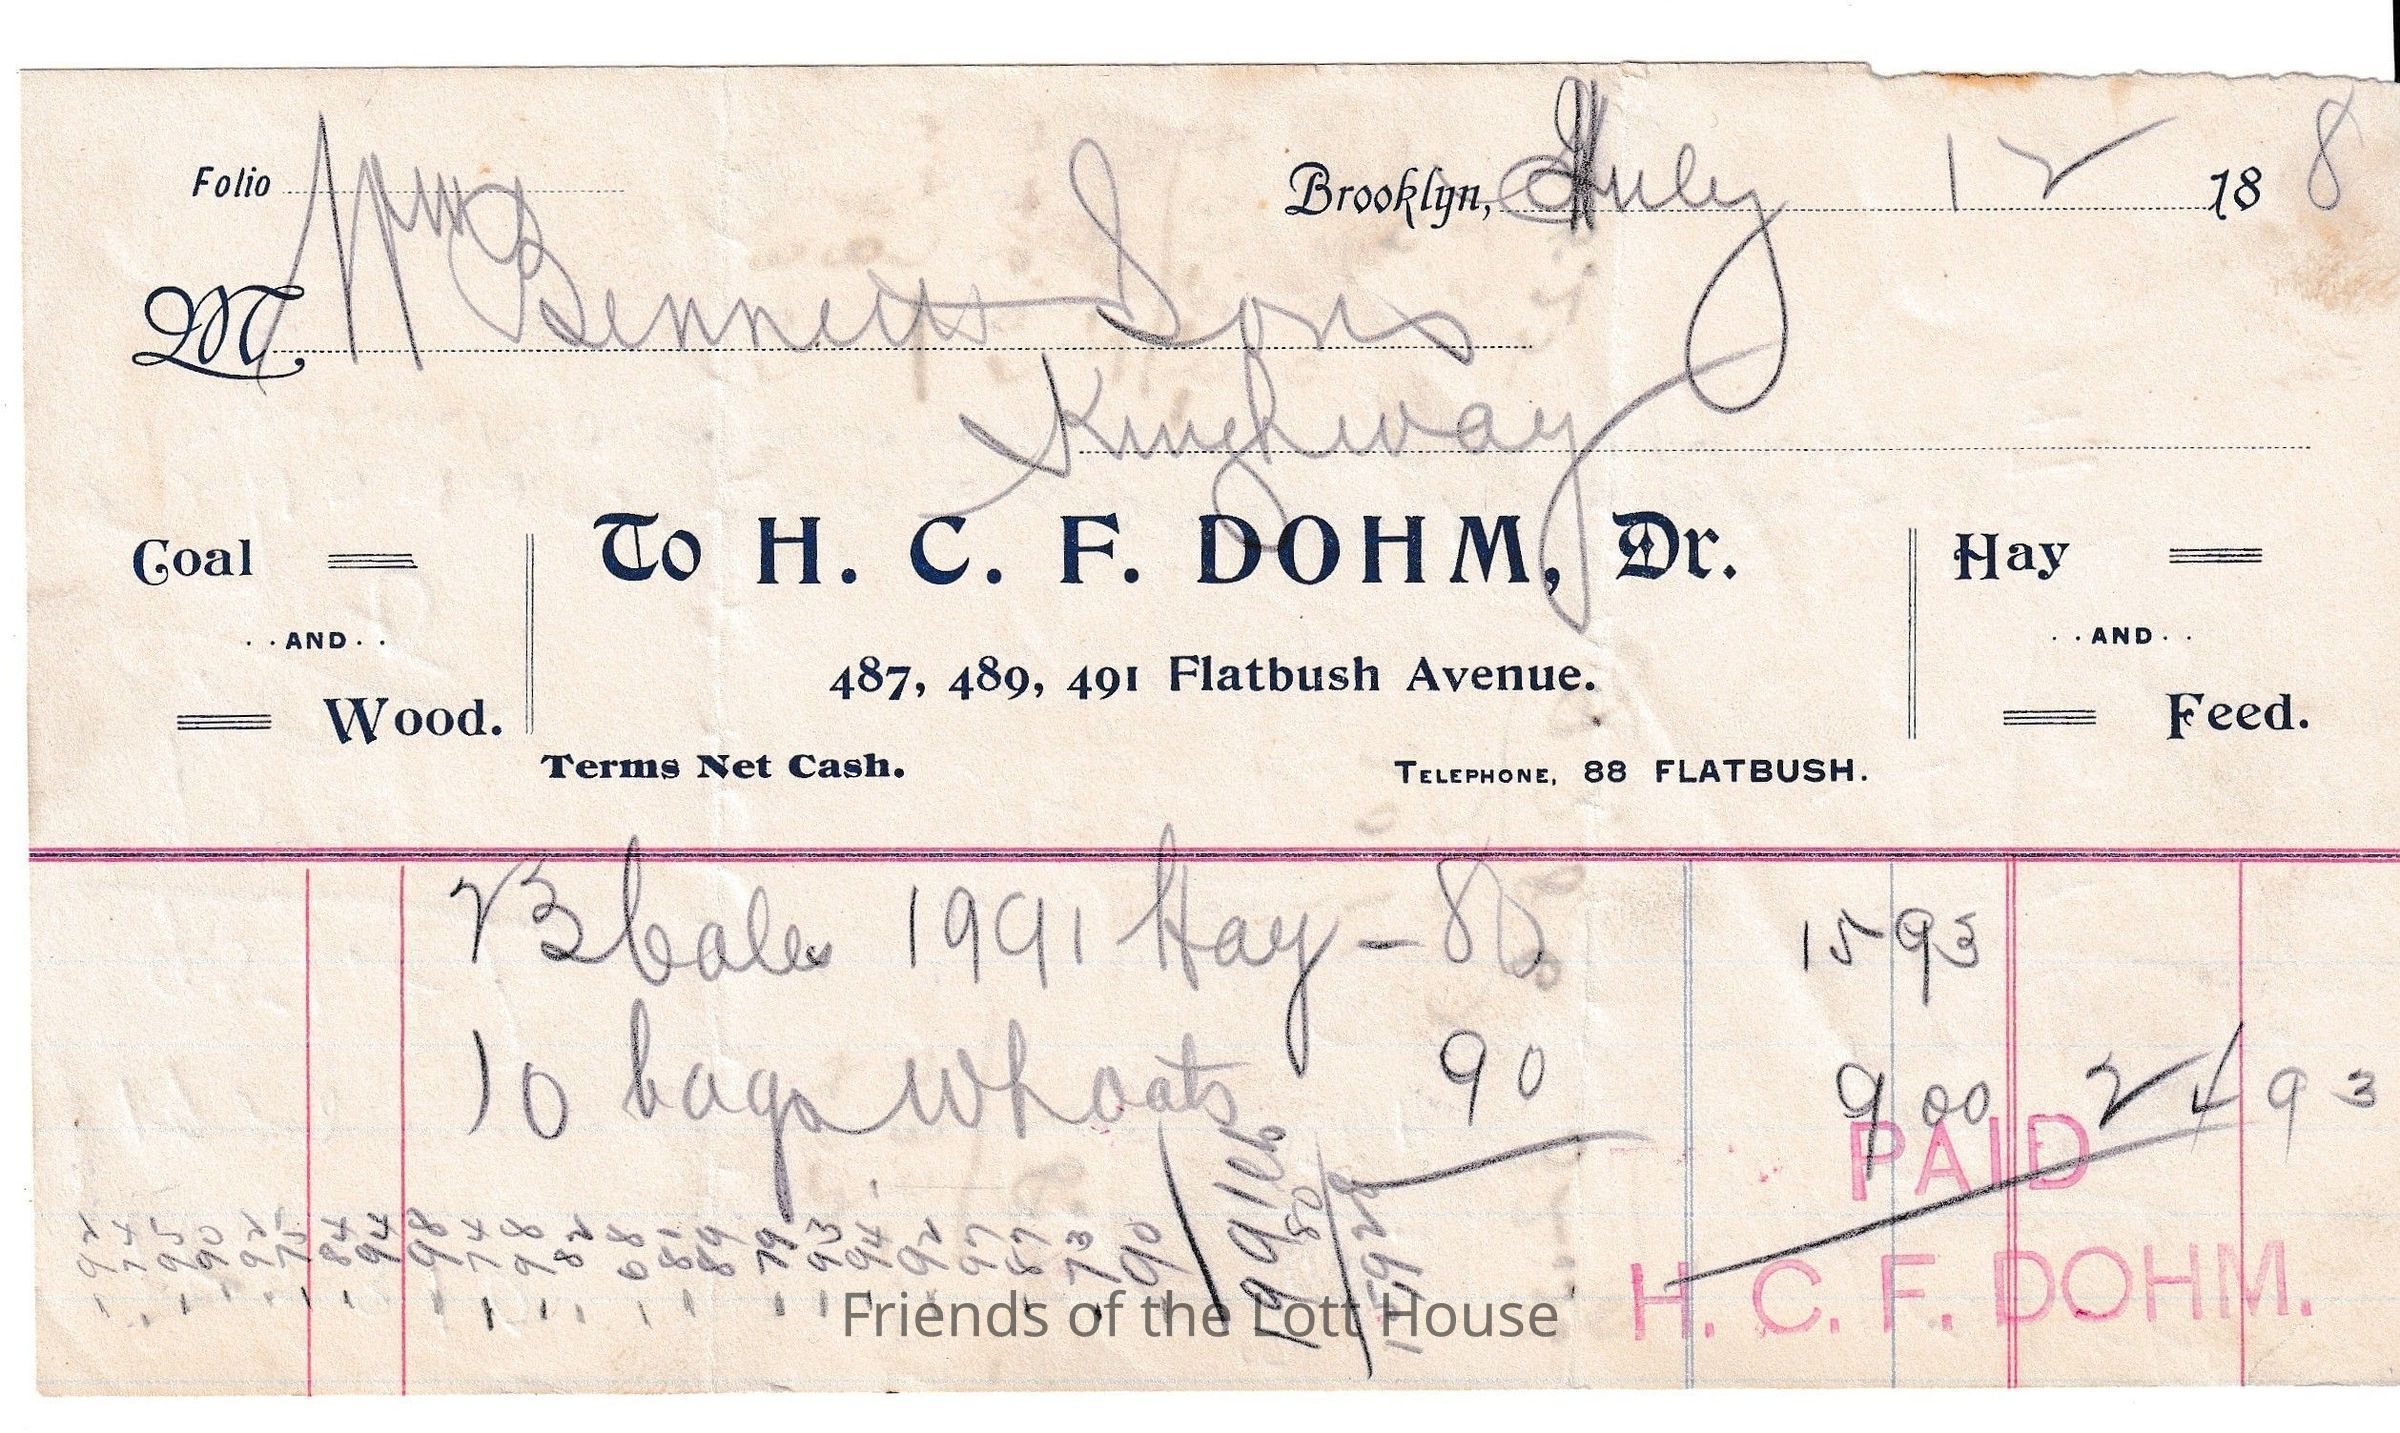 Folio
Brooklyn, July 12 188
M. Wm Bennett Sons
Kinghway
Coal
AND
Wood.
To H. C. F. DOHM, Dr.
487, 489, 491 Flatbush Avenue.
Hay
AND
Feed.
Terms Net Cash.
TELEPHONE, 88 FLATBUSH.
23 bales 1991 Hay - 80 15 93
10 bags Wh oats 90 9 00 24 93
PAID
H. C. F. DOHM.
1991 lb
80
90
Friends of the Lott House